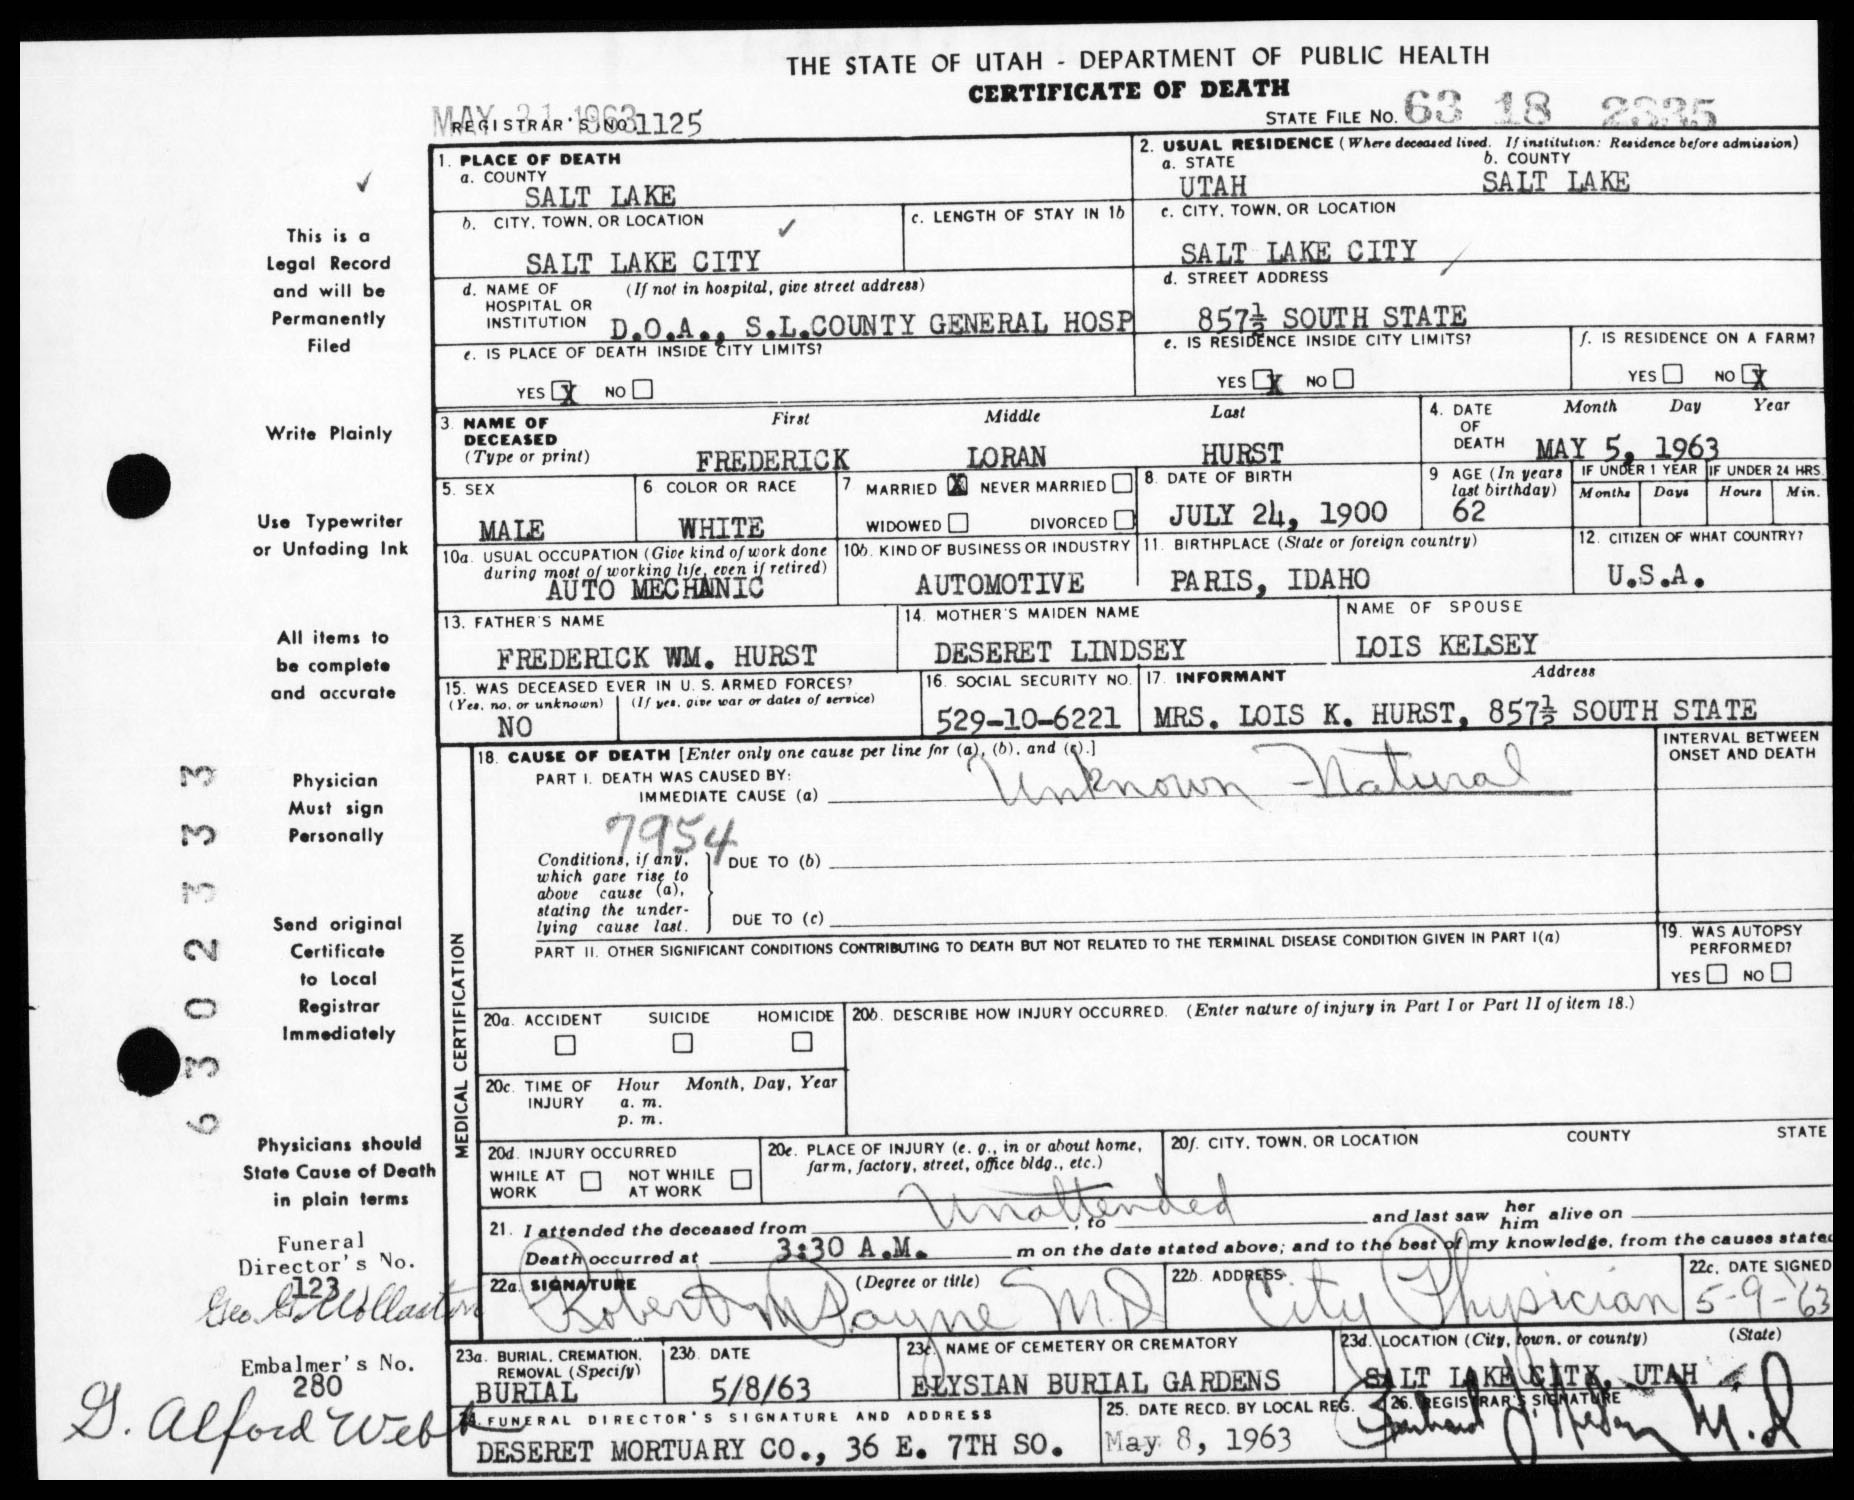 THE STATE OF UTAH - DEPARTMENT OF PUBLIC HEALTH
CERTIFICATE OF DEATH
MAY 31 1963
REGISTRAR'S NO. 1125
STATE FILE NO. 63 18 2335
1. PLACE OF DEATH
a. COUNTY
SALT LAKE
2. USUAL RESIDENCE (Where deceased lived. If institution: Residence before admission)
a. STATE b. COUNTY
UTAH SALT LAKE
b. CITY, TOWN, OR LOCATION
SALT LAKE CITY
c. LENGTH OF STAY IN 1b
c. CITY, TOWN, OR LOCATION
SALT LAKE CITY
d. NAME OF HOSPITAL OR INSTITUTION (If not in hospital, give street address)
D.O.A., S.L.COUNTY GENERAL HOSP
d. STREET ADDRESS
857½ SOUTH STATE
e. IS PLACE OF DEATH INSIDE CITY LIMITS?
YES X NO
e. IS RESIDENCE INSIDE CITY LIMITS?
YES X NO
f. IS RESIDENCE ON A FARM?
YES NO X
3. NAME OF DECEASED (Type or print)
First Middle Last
FREDERICK LORAN HURST
4. DATE OF DEATH Month Day Year
MAY 5, 1963
5. SEX
MALE
6. COLOR OR RACE
WHITE
7 MARRIED X NEVER MARRIED
WIDOWED DIVORCED
8. DATE OF BIRTH
JULY 24, 1900
9 AGE (In years last birthday)
62
IF UNDER 1 YEAR IF UNDER 24 HRS.
Months Days Hours Min.
10a. USUAL OCCUPATION (Give kind of work done during most of working life, even if retired)
AUTO MECHANIC
10b. KIND OF BUSINESS OR INDUSTRY
AUTOMOTIVE
11. BIRTHPLACE (State or foreign country)
PARIS, IDAHO
12. CITIZEN OF WHAT COUNTRY?
U.S.A.
13. FATHER'S NAME
FREDERICK WM. HURST
14. MOTHER'S MAIDEN NAME
DESERET LINDSEY
NAME OF SPOUSE
LOIS KELSEY
15. WAS DECEASED EVER IN U. S. ARMED FORCES?
(Yes, no, or unknown) (If yes, give war or dates of service)
NO
16. SOCIAL SECURITY NO.
529-10-6221
17. INFORMANT Address
MRS. LOIS K. HURST, 857½ SOUTH STATE
MEDICAL CERTIFICATION
18. CAUSE OF DEATH [Enter only one cause per line for (a), (b), and (c).]
PART I. DEATH WAS CAUSED BY:
IMMEDIATE CAUSE (a) Unknown - Natural
INTERVAL BETWEEN ONSET AND DEATH
7954
Conditions, if any, which gave rise to above cause (a), stating the underlying cause last.
DUE TO (b)
DUE TO (c)
PART II. OTHER SIGNIFICANT CONDITIONS CONTRIBUTING TO DEATH BUT NOT RELATED TO THE TERMINAL DISEASE CONDITION GIVEN IN PART I(a)
19. WAS AUTOPSY PERFORMED?
YES NO
20a. ACCIDENT SUICIDE HOMICIDE
20b. DESCRIBE HOW INJURY OCCURRED. (Enter nature of injury in Part I or Part II of item 18.)
20c. TIME OF INJURY Hour Month, Day, Year
a. m.
p. m.
20d. INJURY OCCURRED
WHILE AT WORK NOT WHILE AT WORK
20e. PLACE OF INJURY (e. g., in or about home, farm, factory, street, office bldg., etc.)
20f. CITY, TOWN, OR LOCATION COUNTY STATE
21. I attended the deceased from Unattended, to and last saw her him alive on
Death occurred at 3:30 A.M. m on the date stated above; and to the best of my knowledge, from the causes stated
22a. SIGNATURE (Degree or title)
Robert M Payne M.D
22b. ADDRESS
City Physician
22c. DATE SIGNED
5-9-'63
23a. BURIAL, CREMATION, REMOVAL (Specify)
BURIAL
23b. DATE
5/8/63
23c. NAME OF CEMETERY OR CREMATORY
ELYSIAN BURIAL GARDENS
23d. LOCATION (City, town, or county) (State)
SALT LAKE CITY, UTAH
24. FUNERAL DIRECTOR'S SIGNATURE AND ADDRESS
DESERET MORTUARY CO., 36 E. 7TH SO.
25. DATE RECD. BY LOCAL REG.
May 8, 1963
26. REGISTRAR'S SIGNATURE
M.D
This is a
Legal Record
and will be
Permanently
Filed
Write Plainly
Use Typewriter
or Unfading Ink
All items to
be complete
and accurate
Physician
Must sign
Personally
Send original
Certificate
to Local
Registrar
Immediately
Physicians should
State Cause of Death
in plain terms
Funeral
Director's No.
123
Geo. G. Wollaston
Embalmer's No.
280
G. Alford Webb
63023333